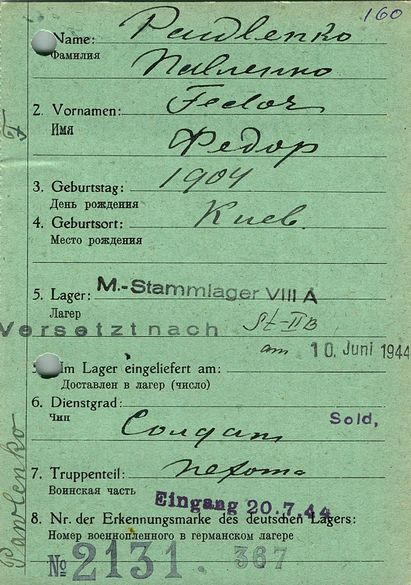 160
Name: Pawlenko
Фамилия Павленко
2. Vornamen: Fedor
Имя Федор
3. Geburtstag: 1904
День рождения
4. Geburtsort: Киев.
Место рождения
5. Lager: M.-Stammlager VIII A
Лагер
Versetzt nach St-IIB
am 10. Juni 1944
5. Im Lager eingeliefert am:
Доставлен в лагер (число)
6. Dienstgrad: Sold,
Чип Солдат
7. Truppenteil: пехота
Воинская часть
Eingang 20.7.44
8. Nr. der Erkennungsmarke des deutschen Lagers:
Номер военнопленного в германском лагере
№ 2131. 367
Pawlenko